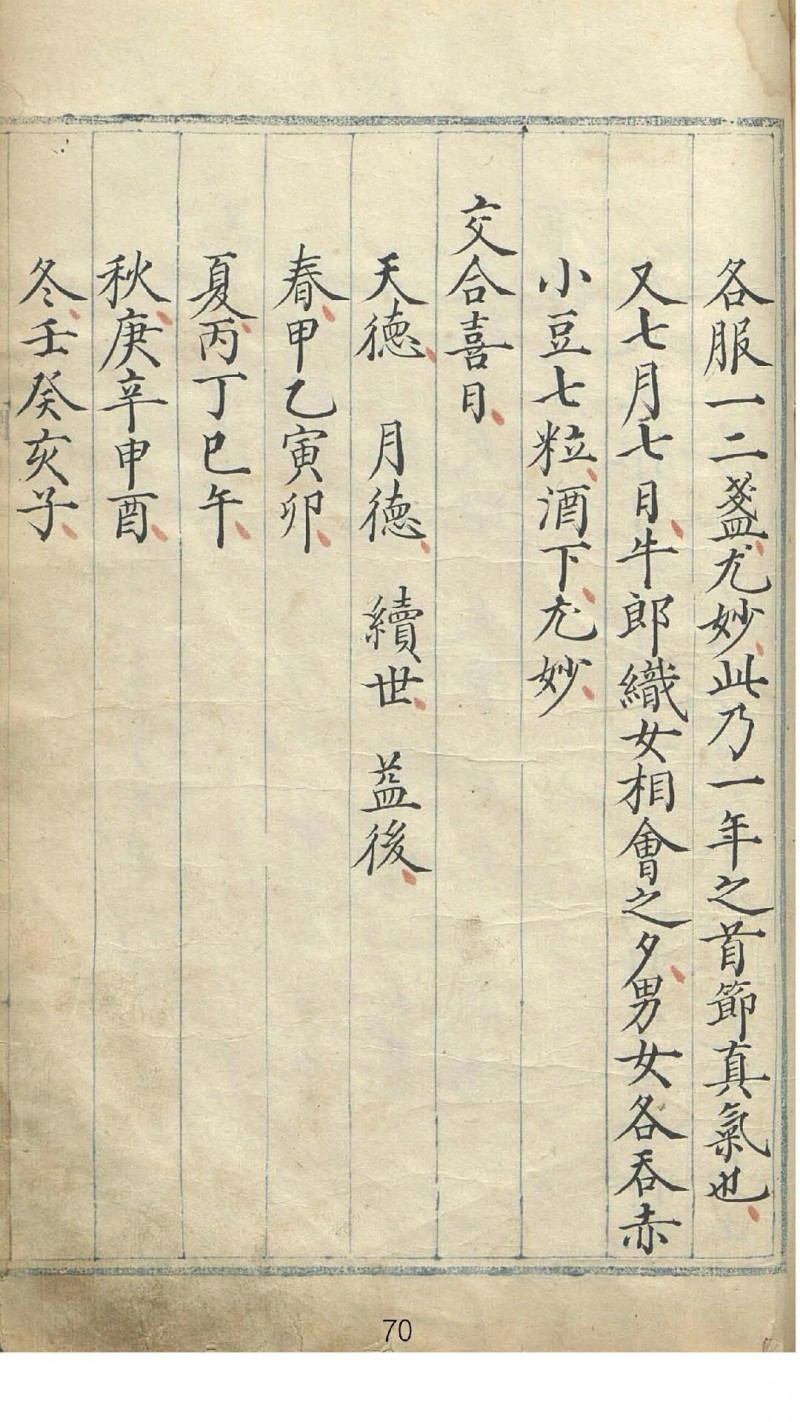 各服一二盞尤妙此乃一年之首節真氣也
又七月七日牛郎織女相會之夕男女各吞赤
小豆七粒酒下尤妙
交合喜日
天德 月德 續世 益後
春甲乙寅卯
夏丙丁巳午
秋庚辛申酉
冬壬癸亥子
70